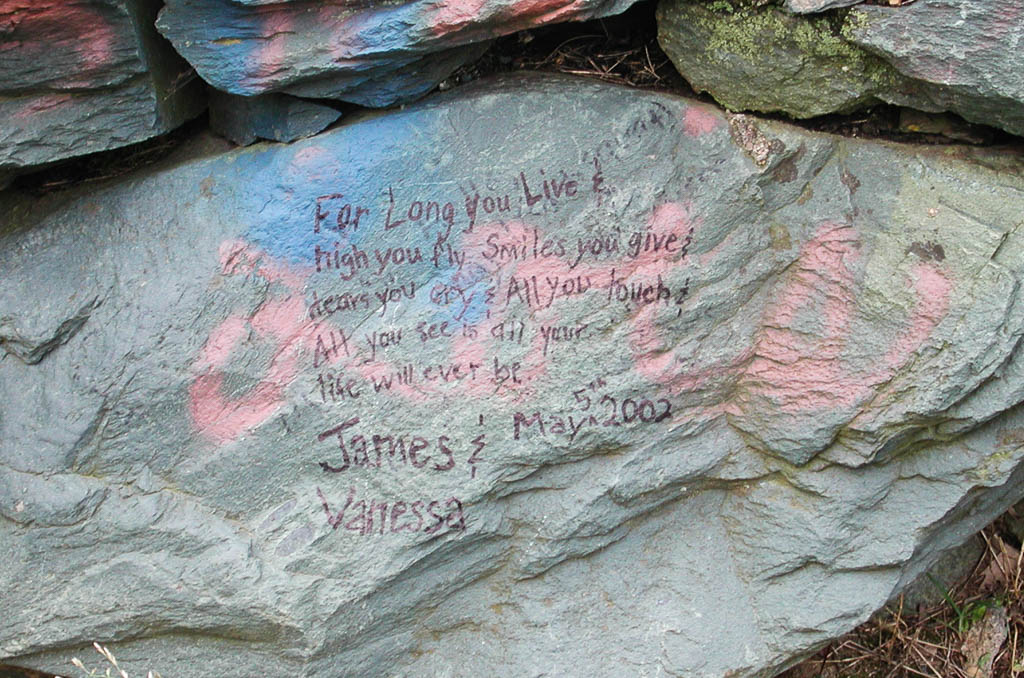 For Long you Live &
high you fly Smiles you give &
tears you cry & All you touch &
All you see is all your
life will ever be
James & May 5th 2002
Vanessa